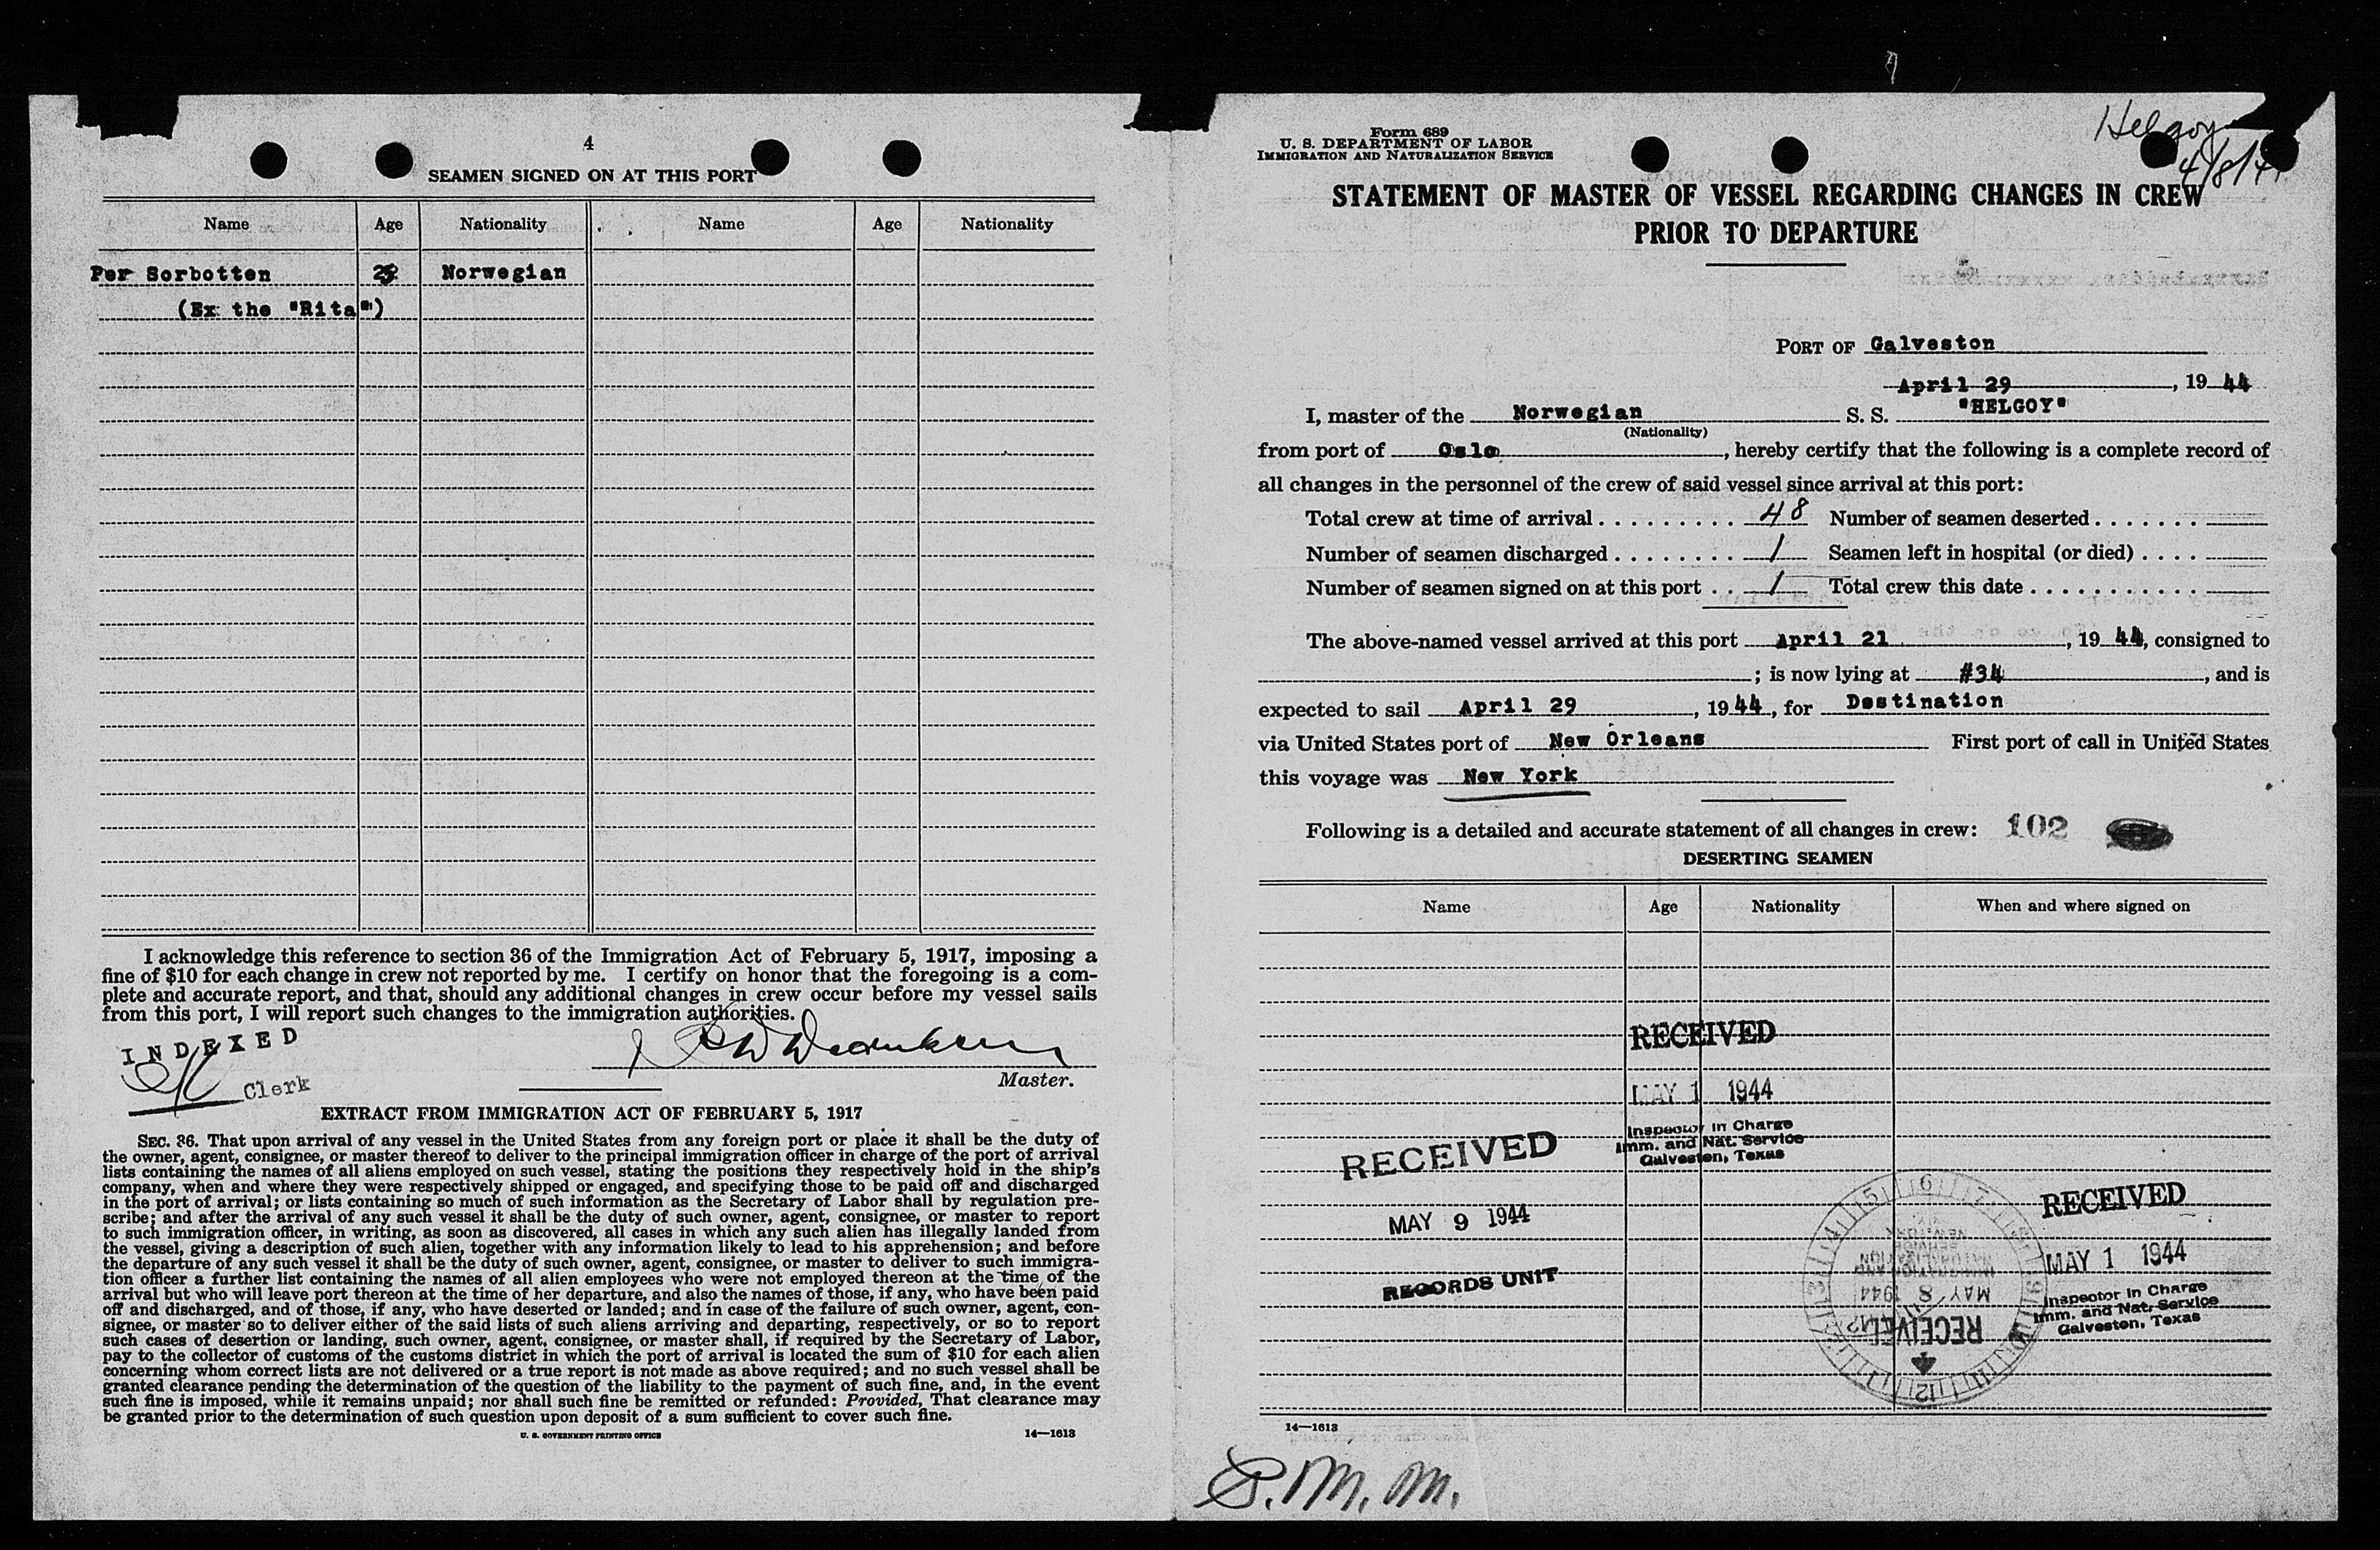 4
SEAMEN SIGNED ON AT THIS PORT
Name Age Nationality Name Age Nationality
Per Sorbotten Norwegian
(Ex the "Rita")
I acknowledge this reference to section 36 of the Immigration Act of February 5, 1917, imposing a
fine of $10 for each change in crew not reported by me. I certify on honor that the foregoing is a com-
plete and accurate report, and that, should any additional changes in crew occur before my vessel sails
from this port, I will report such changes to the immigration authorities.
INDEXED
Clerk
Master.
EXTRACT FROM IMMIGRATION ACT OF FEBRUARY 5, 1917
SEC. 36. That upon arrival of any vessel in the United States from any foreign port or place it shall be the duty of
the owner, agent, consignee, or master thereof to deliver to the principal immigration officer in charge of the port of arrival
lists containing the names of all aliens employed on such vessel, stating the positions they respectively hold in the ship's
company, when and where they were respectively shipped or engaged, and specifying those to be paid off and discharged
in the port of arrival; or lists containing so much of such information as the Secretary of Labor shall by regulation pre-
scribe; and after the arrival of any such vessel it shall be the duty of such owner, agent, consignee, or master to report
to such immigration officer, in writing, as soon as discovered, all cases in which any such alien has illegally landed from
the vessel, giving a description of such alien, together with any information likely to lead to his apprehension; and before
the departure of any such vessel it shall be the duty of such owner, agent, consignee, or master to deliver to such immigra-
tion officer a further list containing the names of all alien employees who were not employed thereon at the time of the
arrival but who will leave port thereon at the time of her departure, and also the names of those, if any, who have been paid
off and discharged, and of those, if any, who have deserted or landed; and in case of the failure of such owner, agent, con-
signee, or master so to deliver either of the said lists of such aliens arriving and departing, respectively, or so to report
such cases of desertion or landing, such owner, agent, consignee, or master shall, if required by the Secretary of Labor,
pay to the collector of customs of the customs district in which the port of arrival is located the sum of $10 for each alien
concerning whom correct lists are not delivered or a true report is not made as above required; and no such vessel shall be
granted clearance pending the determination of the question of the liability to the payment of such fine, and, in the event
such fine is imposed, while it remains unpaid; nor shall such fine be remitted or refunded: Provided, That clearance may
be granted prior to the determination of such question upon deposit of a sum sufficient to cover such fine.
U. S. GOVERNMENT PRINTING OFFICE 14—1613
Form 689
U. S. DEPARTMENT OF LABOR
IMMIGRATION AND NATURALIZATION SERVICE
Helgoy
STATEMENT OF MASTER OF VESSEL REGARDING CHANGES IN CREW
PRIOR TO DEPARTURE
PORT OF Galveston
April 29, 19 44
I, master of the Norwegian S. S. "HELGOY"
(Nationality)
from port of Oslo, hereby certify that the following is a complete record of
all changes in the personnel of the crew of said vessel since arrival at this port:
Total crew at time of arrival 48 Number of seamen deserted
Number of seamen discharged 1 Seamen left in hospital (or died)
Number of seamen signed on at this port 1 Total crew this date
The above-named vessel arrived at this port April 21, 19 44, consigned to
; is now lying at #34, and is
expected to sail April 29, 19 44, for Destination
via United States port of New Orleans First port of call in United States
this voyage was New York
Following is a detailed and accurate statement of all changes in crew: 102
DESERTING SEAMEN
Name Age Nationality When and where signed on
RECEIVED
MAY 1 1944
Inspector in Charge
Imm. and Nat. Service
Galveston, Texas
RECEIVED
MAY 9 1944
RECORDS UNIT
RECEIVED
MAY 1 1944
Inspector in Charge
Imm. and Nat. Service
Galveston, Texas
RECEIVED
MAY 8 1944
IMMIGRATION AND
NATURALIZATION
SERVICE
NEW YORK
14—1613
S.M.M.